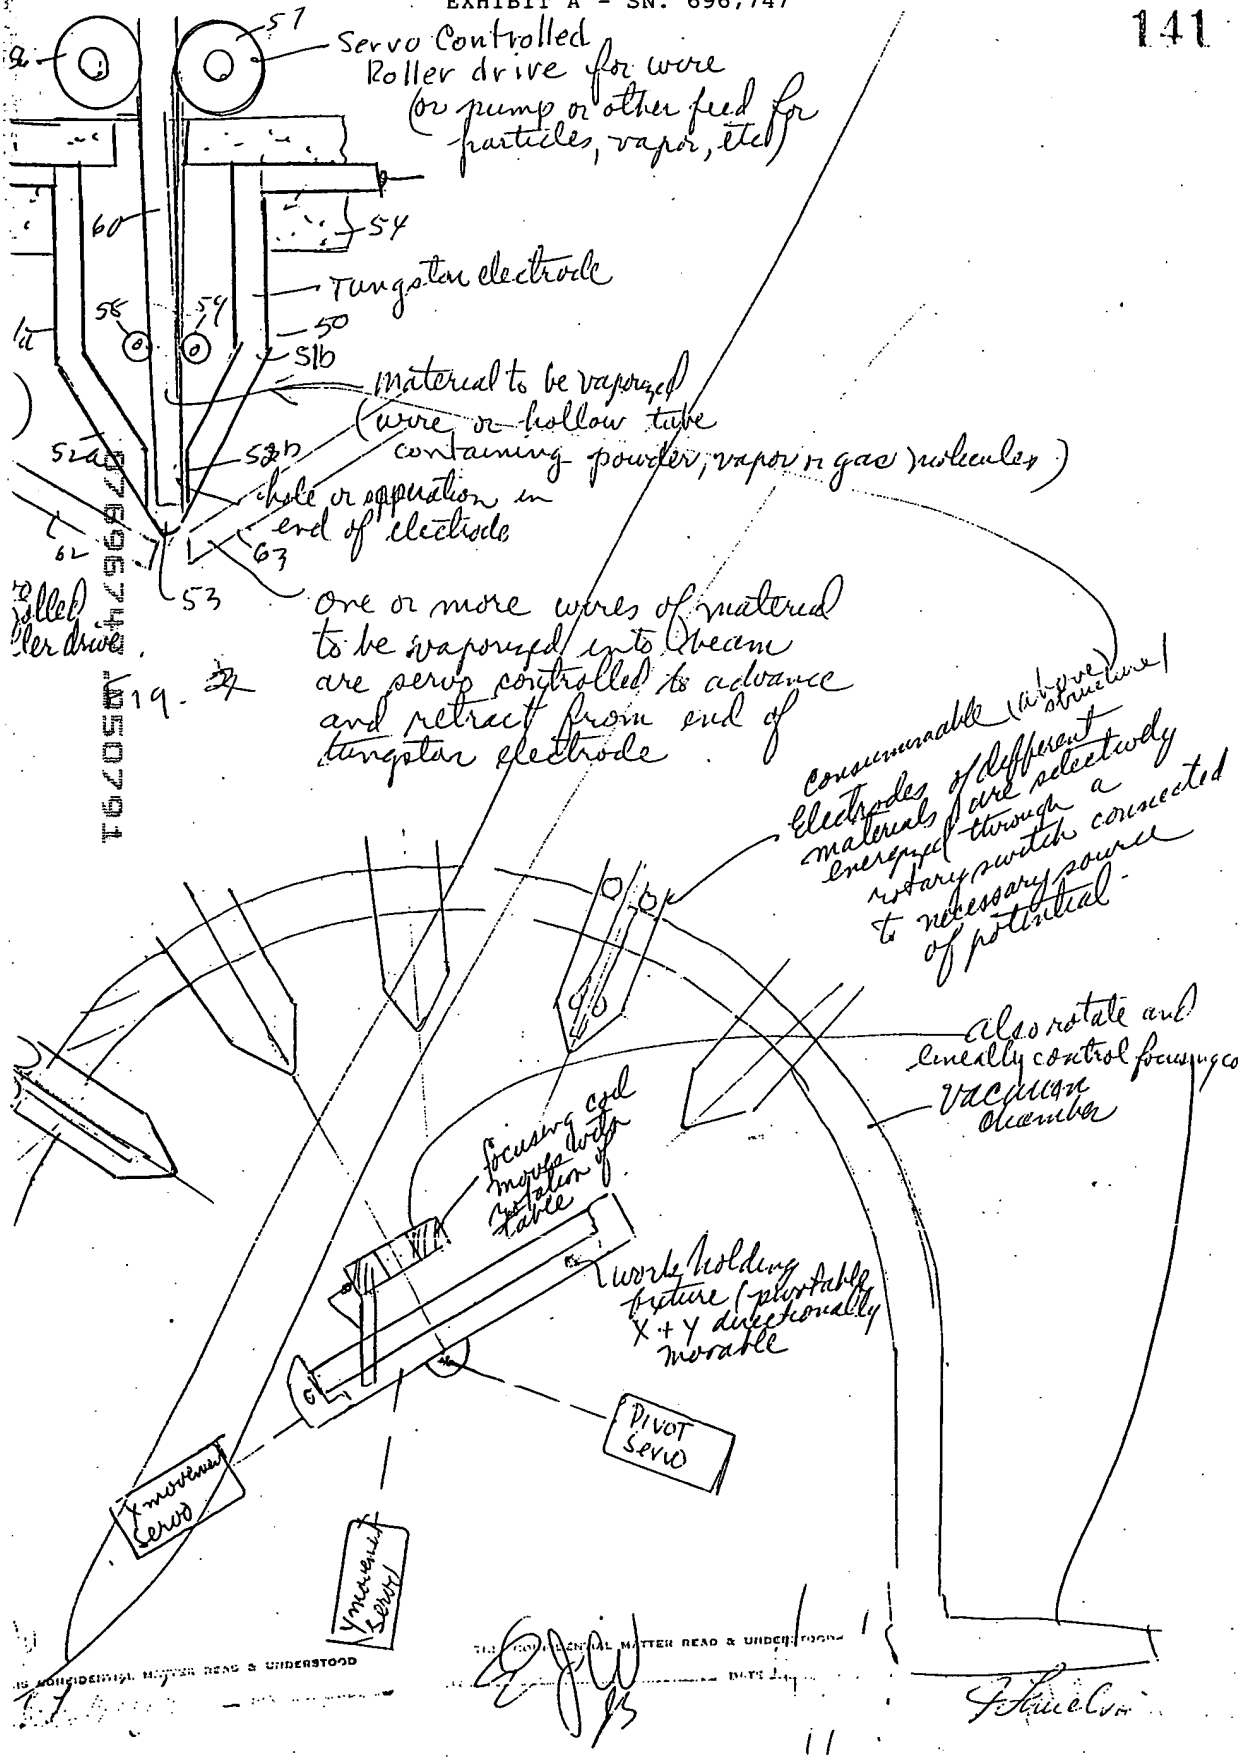 EXHIBIT A - SN. 696,747
141
57
Servo Controlled
Roller drive for wire
(or pump or other feed for
particles, vapor, etc)
60
54
Tungston electrode
58
59
50
51b
material to be vaporized
(wire or hollow tube
containing powder, vapor or gas molecules)
52a
52b
hole or apperation in
end of electrode
62
63
53
olled
ler drive
one or more wires of material
to be vaporized into beam
are servo controlled to advance
and retract from end of
tungston electrode.
07696747.050791
consummable (above structure)
Electrodes of different
materials are selectively
energized through a
rotary switch connected
to necessary source
of potential.
also rotate and
lineally control focusing co
vacuum
chamber
focusing coil
moves with
rotation of
table
work holding
fixture (pivotable
X + Y directionally
movable
Pivot
Servo
X movement
Servo
Y movement
Servo
CONFIDENTIAL MATTER READ & UNDERSTOOD
CONFIDENTIAL MATTER READ & UNDERSTOOD